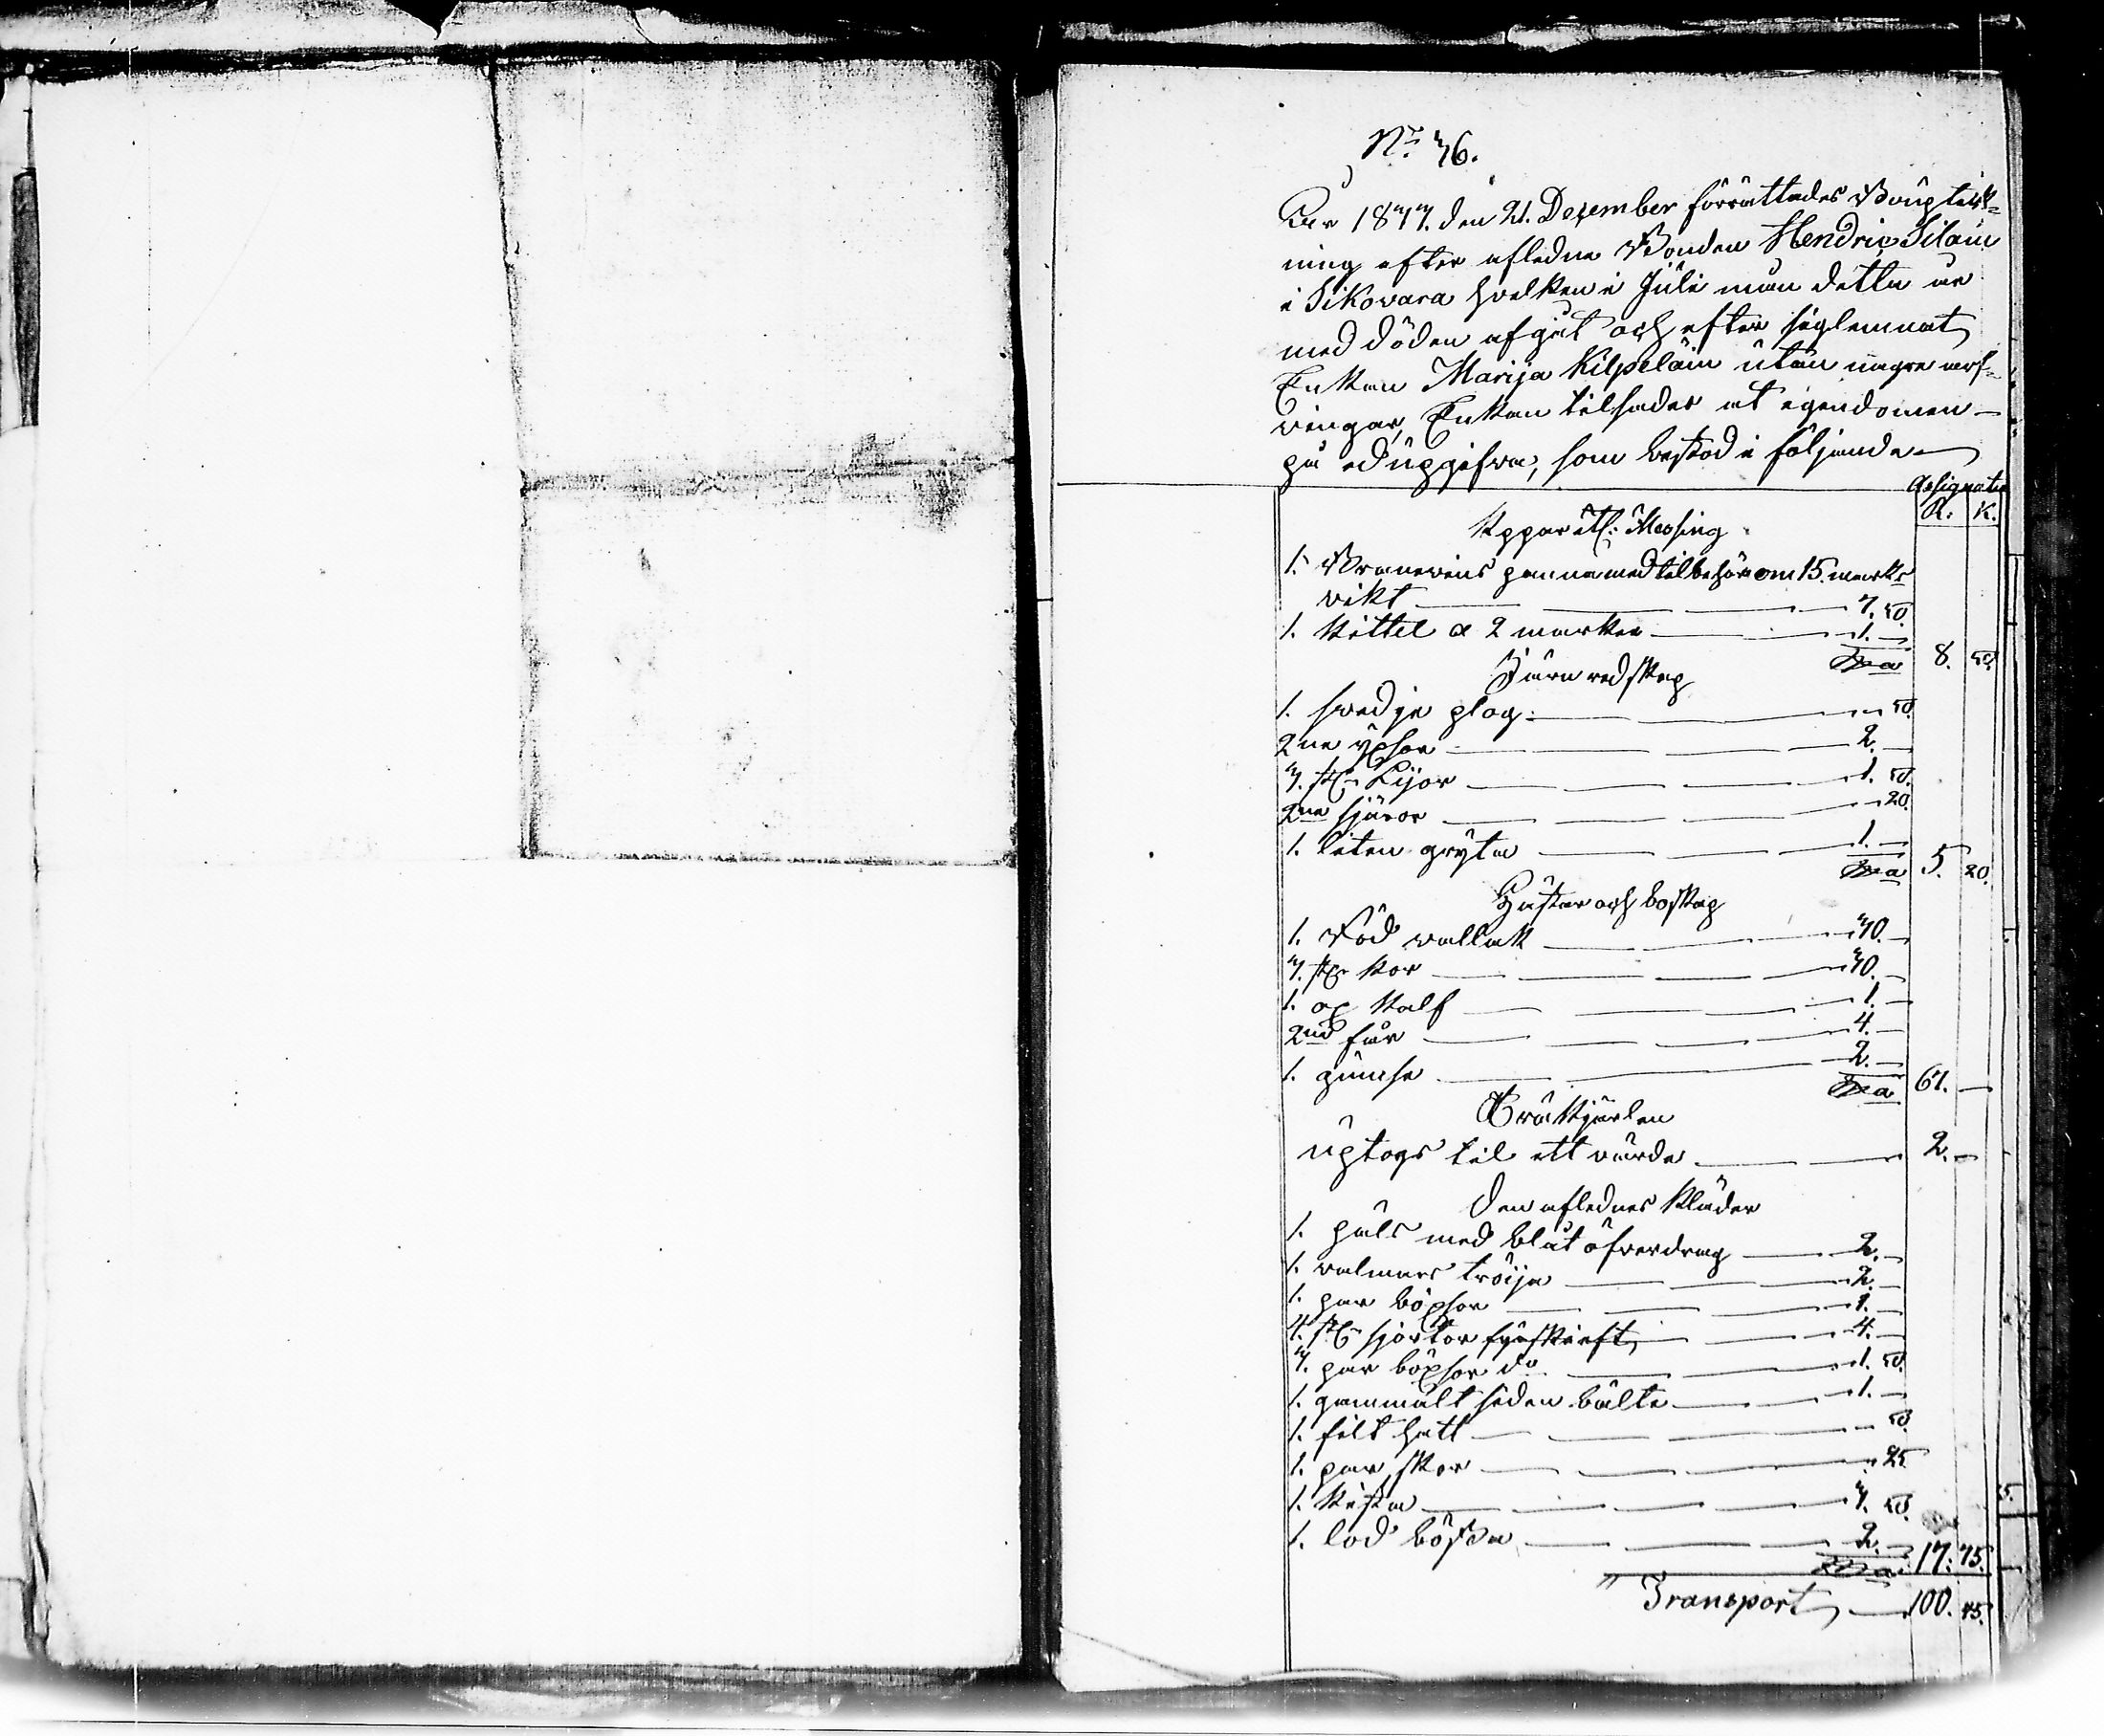 No: 36.
Åhr 1833. den 21. Dezember förrättades Bouptek-
ning efter afledne Bonden Hendric Silain
i Sikovara hvilken i Juli mån detta år
med döden afgåt och efter siglemnat
Enkan Marija Kilpeläin utan några arf-
vingar, Enkan tilsades at egendomen
på ed upgifva, som bestod i följande
Assignatio
R: K.
Koppar ock Messing
1. Branevins panna med tilbehör om 15. marks
vikt 7. 50.
1. Kittel a 2 marker 1.
Sma 8. 50.
Järn redskap
1. svedje plog 50.
2ne yxsor 2.
3. st. Lijor 1. 50.
2ne sjäror 20.
1. liten gryta 1.
Sma 5. 20.
Hästar och boskap
1. röd vallak 30.
3. st. kor 30.
1. ox kalf 1.
2ne får 4.
1. gumse 2.
Sma 67.
Träkjärlen
uptogs til ett värde 2.
Den aflednes kläder
1. päls med blåt öfverdrag 2.
1. valmars tröija 2.
1. par böxsor 1.
4. st. sjortor 4.
3. par böxsor do 1. 50.
1. gammalt siden bälte 1.
1. filt hatt 50.
1. par skor 25
1. kista 3. 50.
1. lod bössa 2.
Sma 17. 75.
Transport 100. 45.